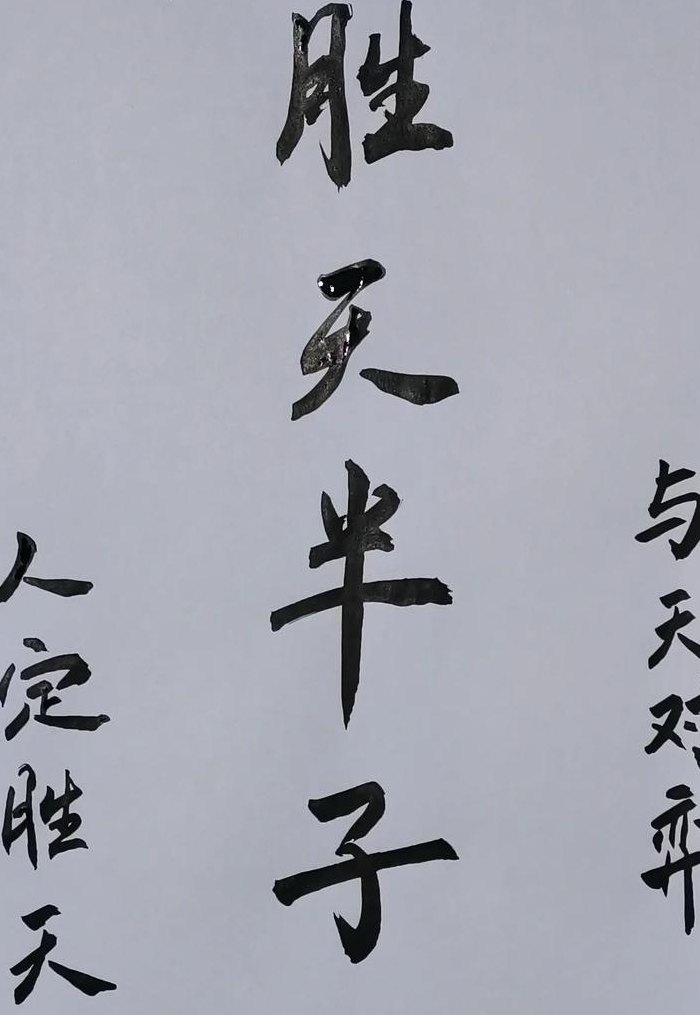 与天对弈
胜天半子
人定胜天